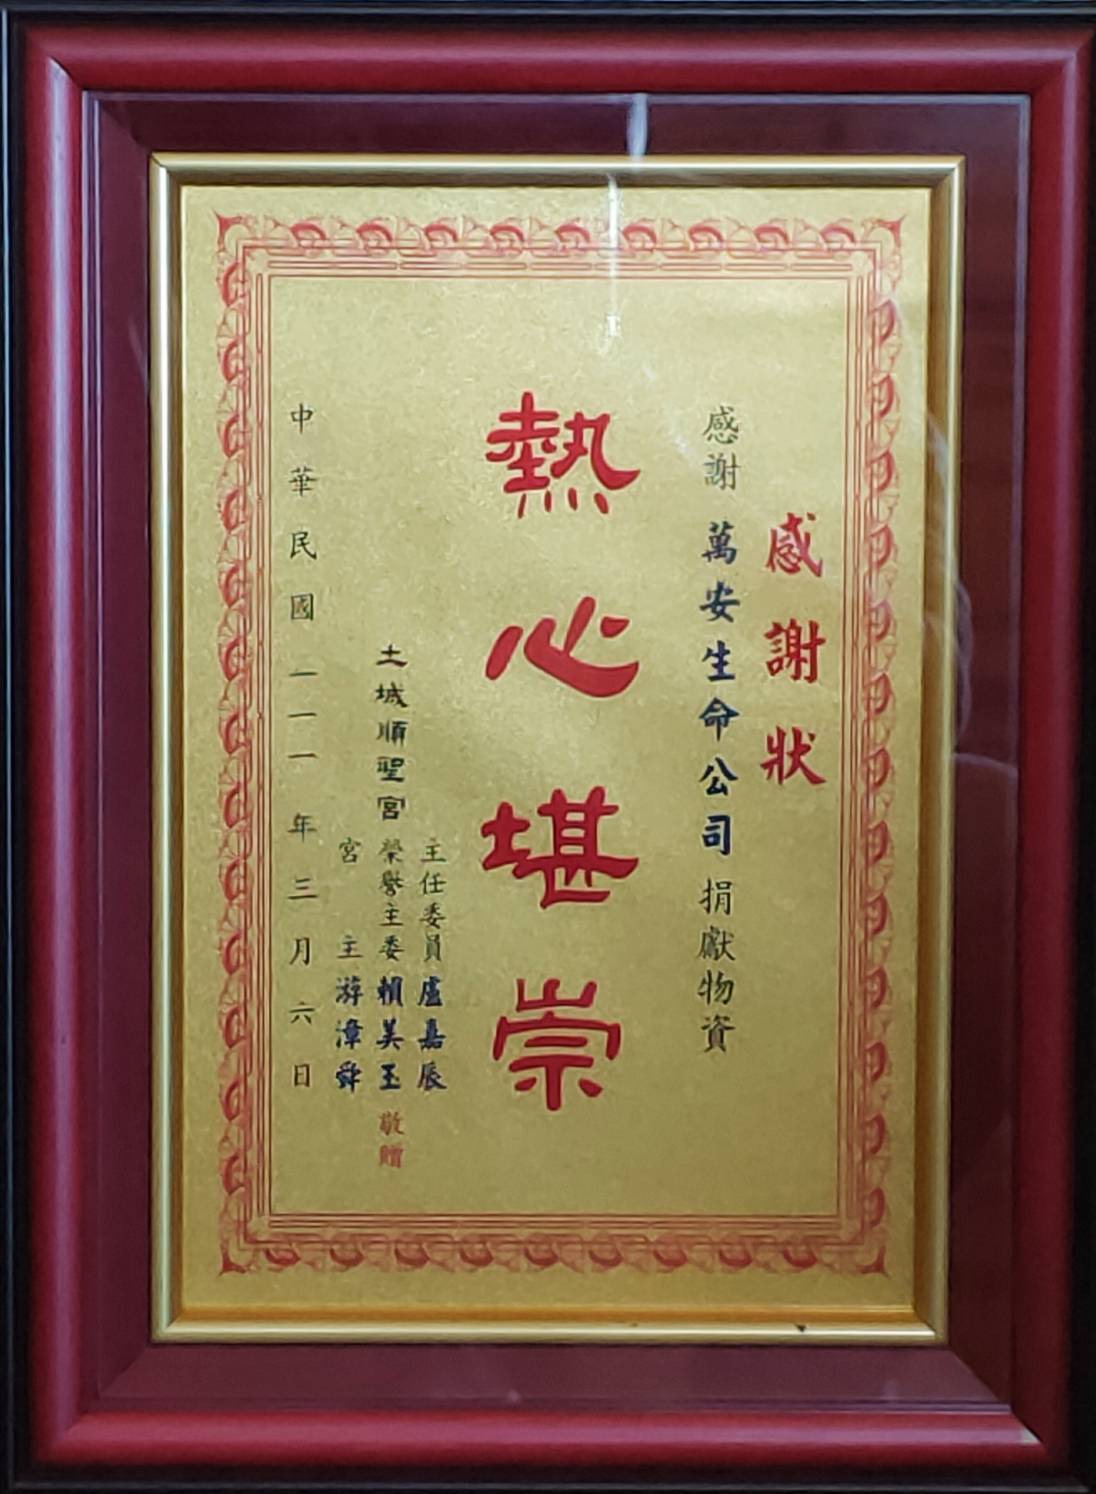 感謝狀
感謝 萬安生命公司 捐獻物資
熱心堪崇
主任委員 盧嘉辰
土城順聖宮 榮譽主委 賴美玉 敬贈
宮主 游漳舜
中華民國一一一年三月六日